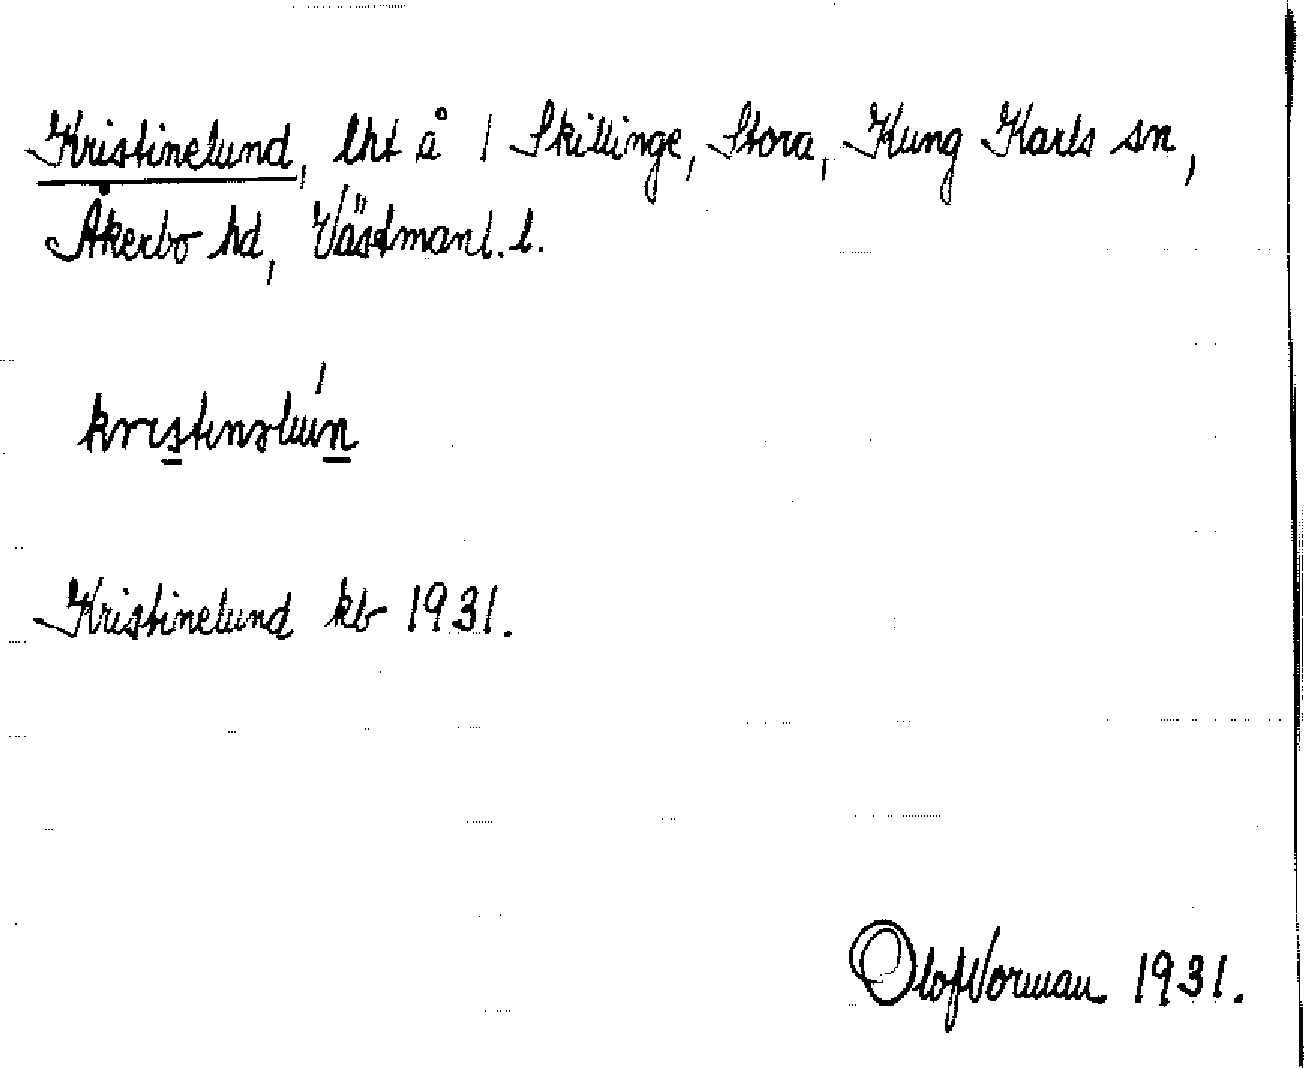 Kristinelund, lht å 1 Skillinge, Stora, Kung Karls sn,
Åkerbo hd, Västmanl. l.
kristinəlun
Kristinelund kb 1931.
Olof Norman 1931.